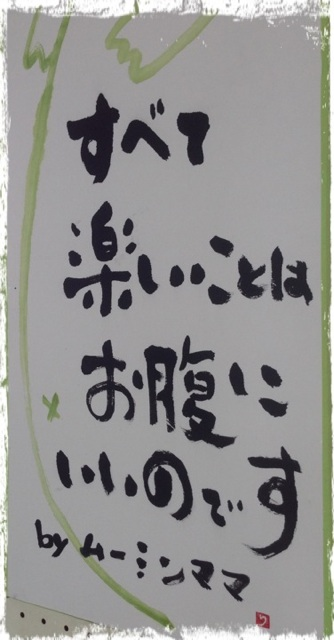 すべて
楽しいことは
お腹に
いいのです
by ムーミンママ